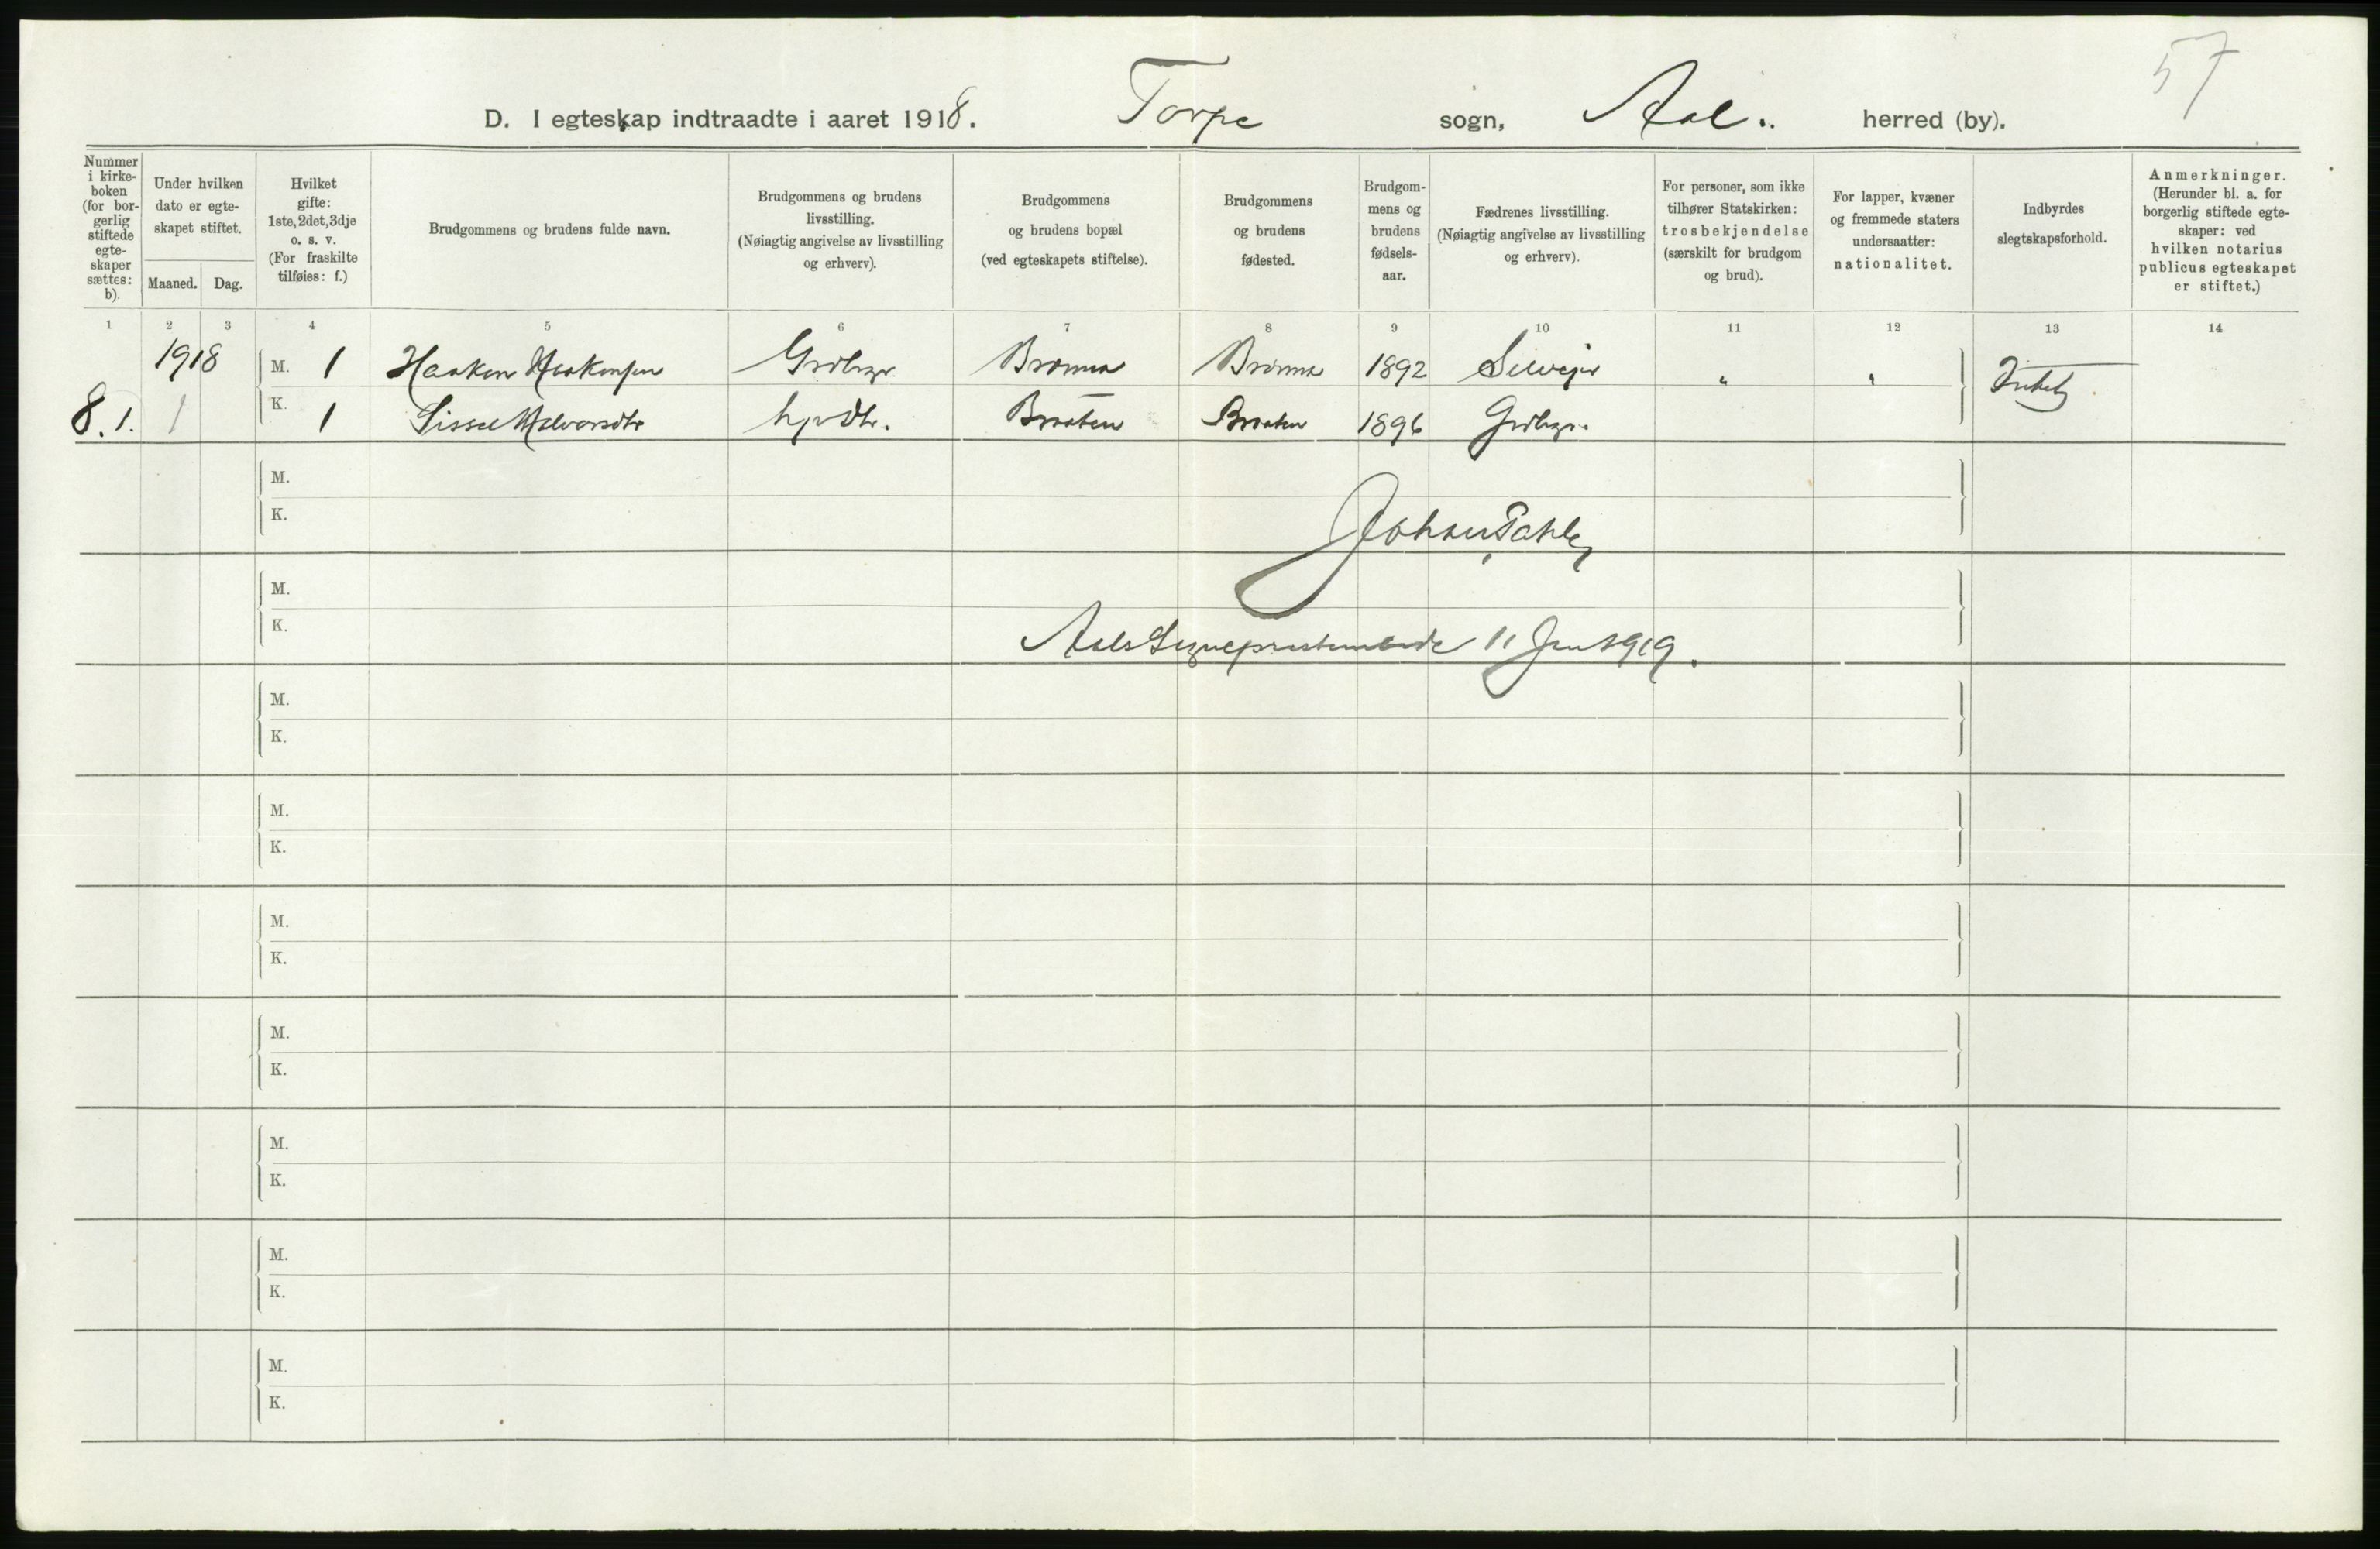 57
D. I egteskap indtraadte i aaret 1918. Torpe sogn, Aal. herred (by).
Nummer i kirkeboken (for borgerlig stiftede egteskaper sættes: b).
Under hvilken dato er egteskapet stiftet.
Maaned. Dag.
Hvilket gifte: 1ste, 2det, 3dje o. s. v. (For fraskilte tilføies: f.)
Brudgommens og brudens fulde navn.
Brudgommens og brudens livsstilling. (Nøiagtig angivelse av livsstilling og erhverv).
Brudgommens og brudens bopæl (ved egteskapets stiftelse).
Brudgommens og brudens fødested.
Brudgommens og brudens fødselsaar.
Fædrenes livsstilling. (Nøiagtig angivelse av livsstilling og erhverv).
For personer, som ikke tilhører Statskirken: trosbekjendelse (særskilt for brudgom og brud).
For lapper, kvæner og fremmede staters undersaatter: nationalitet.
Indbyrdes slegtskapsforhold.
Anmerkninger. (Herunder bl. a. for borgerlig stiftede egteskaper: ved hvilken notarius publicus egteskapet er stiftet.)
1 2 3 4 5 6 7 8 9 10 11 12 13 14
1918 M. 1 Haaken Haakensen Grdbrgr. 1892 " " Intet
8. 1. 1 K. 1 Sissel Halvorsdtr Braaten Braaten 1896 Grdbrgr.
M.
K.
Johan
M.
K.
Aals Sogneprestembede 11 Jan 1919.
M.
K.
M.
K.
M.
K.
M.
K.
M.
K.
M.
K.
M.
K.